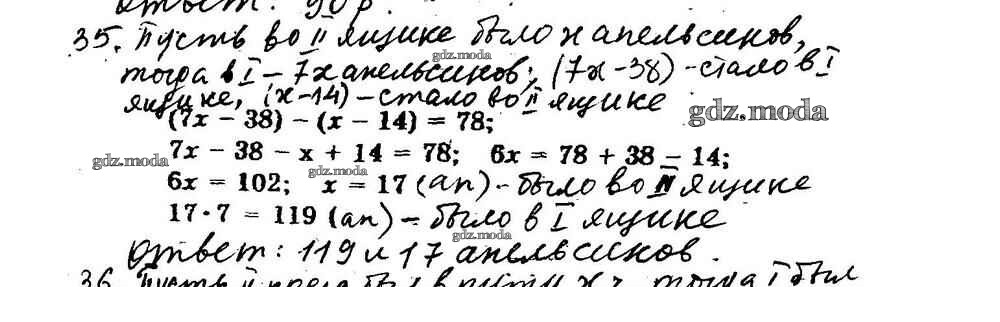 Ответ: 90 р.
35. Пусть во II ящике было x апельсинов,
gdz.moda
тогда в I – 7x апельсинов; (7x – 38) – стало в I
ящике, (x – 14) – стало во II ящике
gdz.moda
gdz.moda
(7x – 38) – (x – 14) = 78;
gdz.moda
7x – 38 – x + 14 = 78; 6x = 78 + 38 – 14;
gdz.moda
gdz.moda
6x = 102; x = 17 (ап) – было во II ящике
17 · 7 = 119 (ап) – было в I ящике
gdz.moda
Ответ: 119 и 17 апельсинов.
36. Пусть II